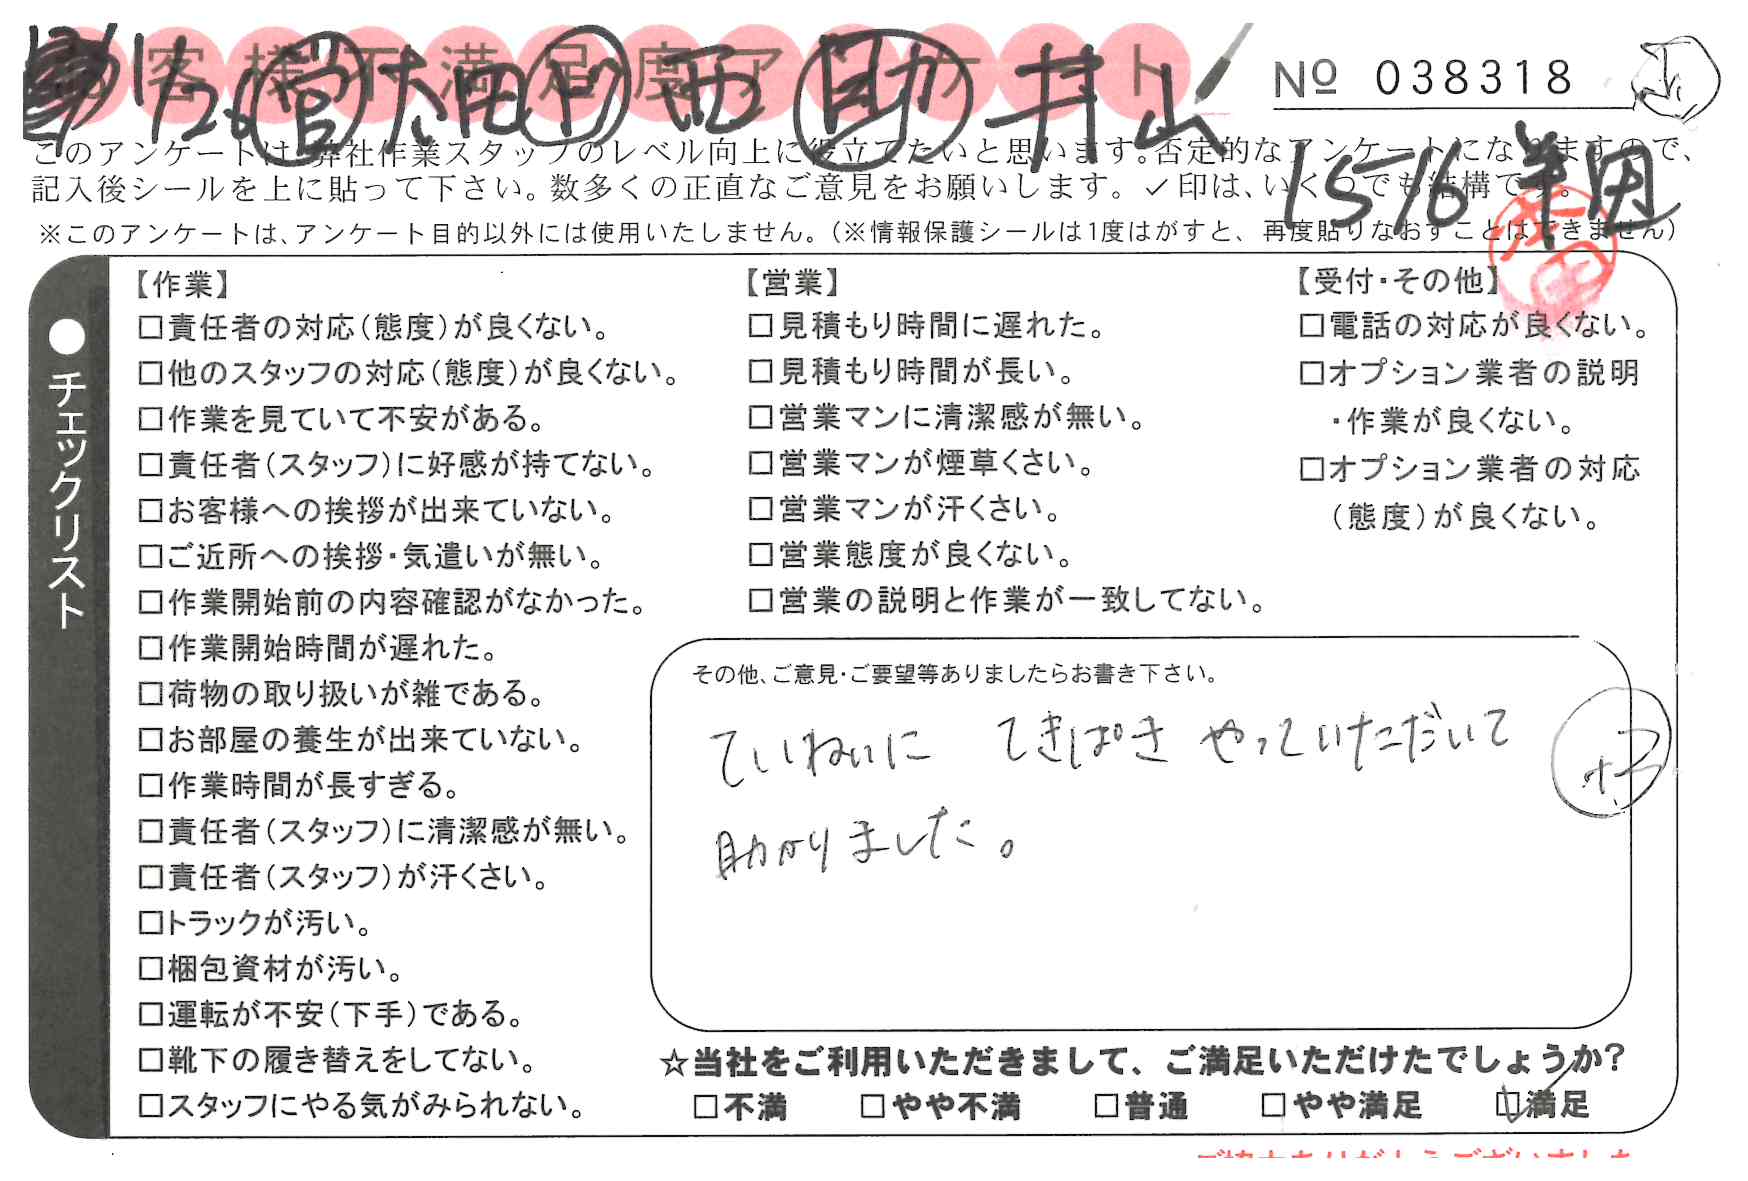 お客様不満足度アンケート
1/26 営 太田 作 西 助 井山
№ 038318
このアンケートは、弊社作業スタッフのレベル向上に役立てたいと思います。否定的なアンケートになりますので、
記入後シールを上に貼って下さい。数多くの正直なご意見をお願いします。✓印は、いくつでも結構です。
1576
※このアンケートは、アンケート目的以外には使用いたしません。(※情報保護シールは1度はがすと、再度貼りなおすことはできません)
●チェックリスト
【作業】
□責任者の対応(態度)が良くない。
□他のスタッフの対応(態度)が良くない。
□作業を見ていて不安がある。
□責任者(スタッフ)に好感が持てない。
□お客様への挨拶が出来ていない。
□ご近所への挨拶・気遣いが無い。
□作業開始前の内容確認がなかった。
□作業開始時間が遅れた。
□荷物の取り扱いが雑である。
□お部屋の養生が出来ていない。
□作業時間が長すぎる。
□責任者(スタッフ)に清潔感が無い。
□責任者(スタッフ)が汗くさい。
□トラックが汚い。
□梱包資材が汚い。
□運転が不安(下手)である。
□靴下の履き替えをしてない。
□スタッフにやる気がみられない。
【営業】
□見積もり時間に遅れた。
□見積もり時間が長い。
□営業マンに清潔感が無い。
□営業マンが煙草くさい。
□営業マンが汗くさい。
□営業態度が良くない。
□営業の説明と作業が一致してない。
【受付・その他】
□電話の対応が良くない。
□オプション業者の説明
・作業が良くない。
□オプション業者の対応
(態度)が良くない。
その他、ご意見・ご要望等ありましたらお書き下さい。
ていねいに てきぱき やっていただいて
助かりました。
☆当社をご利用いただきまして、ご満足いただけたでしょうか?
□不満 □やや不満 □普通 □やや満足 ☑満足
ご協力ありがとうございました